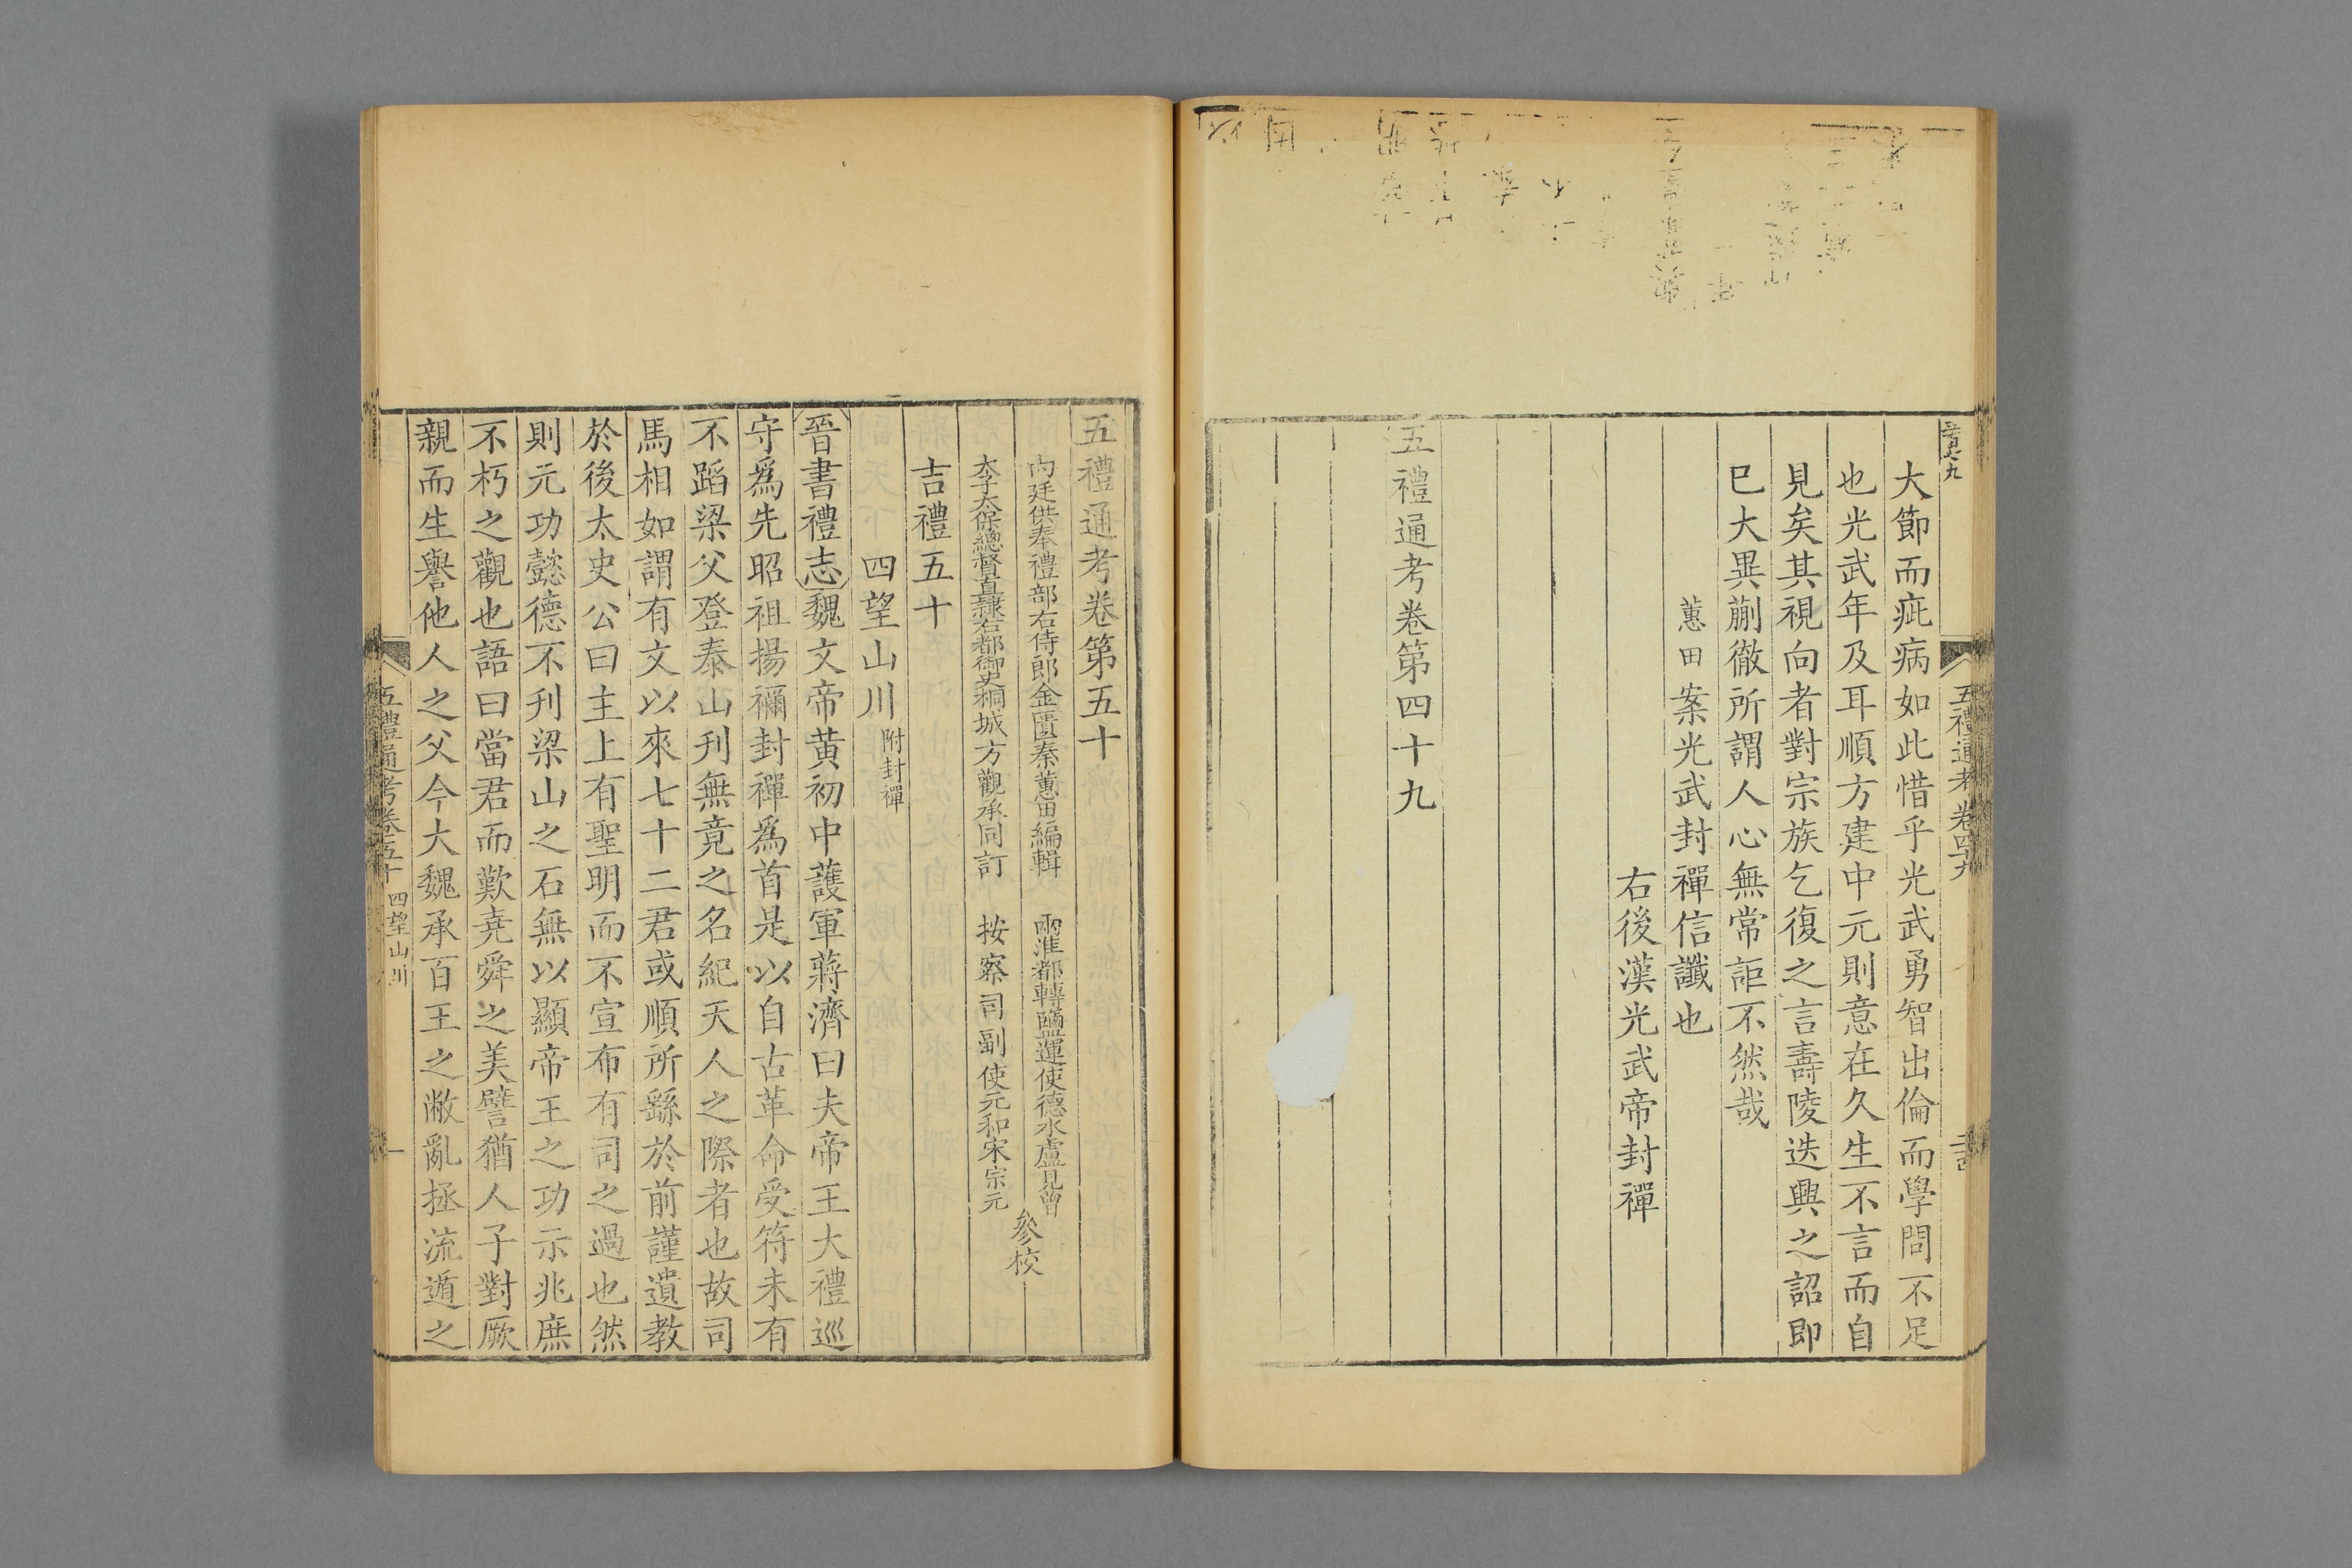 大節而疵病如此惜乎光武勇智出倫而學問不足
也光武年及耳順方建中元則意在久生不言而自
見矣其視向者對宗族乞復之言壽陵迭興之詔即
巳大異蒯徹所謂人心無常詎不然哉
蕙田案光武封禪信讖也
右後漢光武帝封禪
五禮通考卷第四十九
五禮通考卷四十九
五禮通考卷第五十
內廷供奉禮部右侍郎金匱秦蕙田編輯 兩淮都轉鹽運使德水盧見曾
太子太保總督直隸右都御史桐城方觀承同訂 按察司副使元和宋宗元
參校
吉禮五十
四望山川附封禪
晉書禮志魏文帝黃初中護軍蔣濟曰夫帝王大禮巡
守爲先昭祖揚禰封禪爲首是以自古革命受符未有
不蹈梁父登泰山刋無竟之名紀天人之際者也故司
馬相如謂有文以來七十二君或順所繇於前謹遺教
於後太史公曰主上有聖明而不宣布有司之過也然
則元功懿德不刋梁山之石無以顯帝王之功示兆庶
不朽之觀也語曰當君而歎堯舜之美譬猶人子對厥
親而生譽他人之父今大魏承百王之敝亂拯流遁之
五禮通考卷五十 四望山川 一